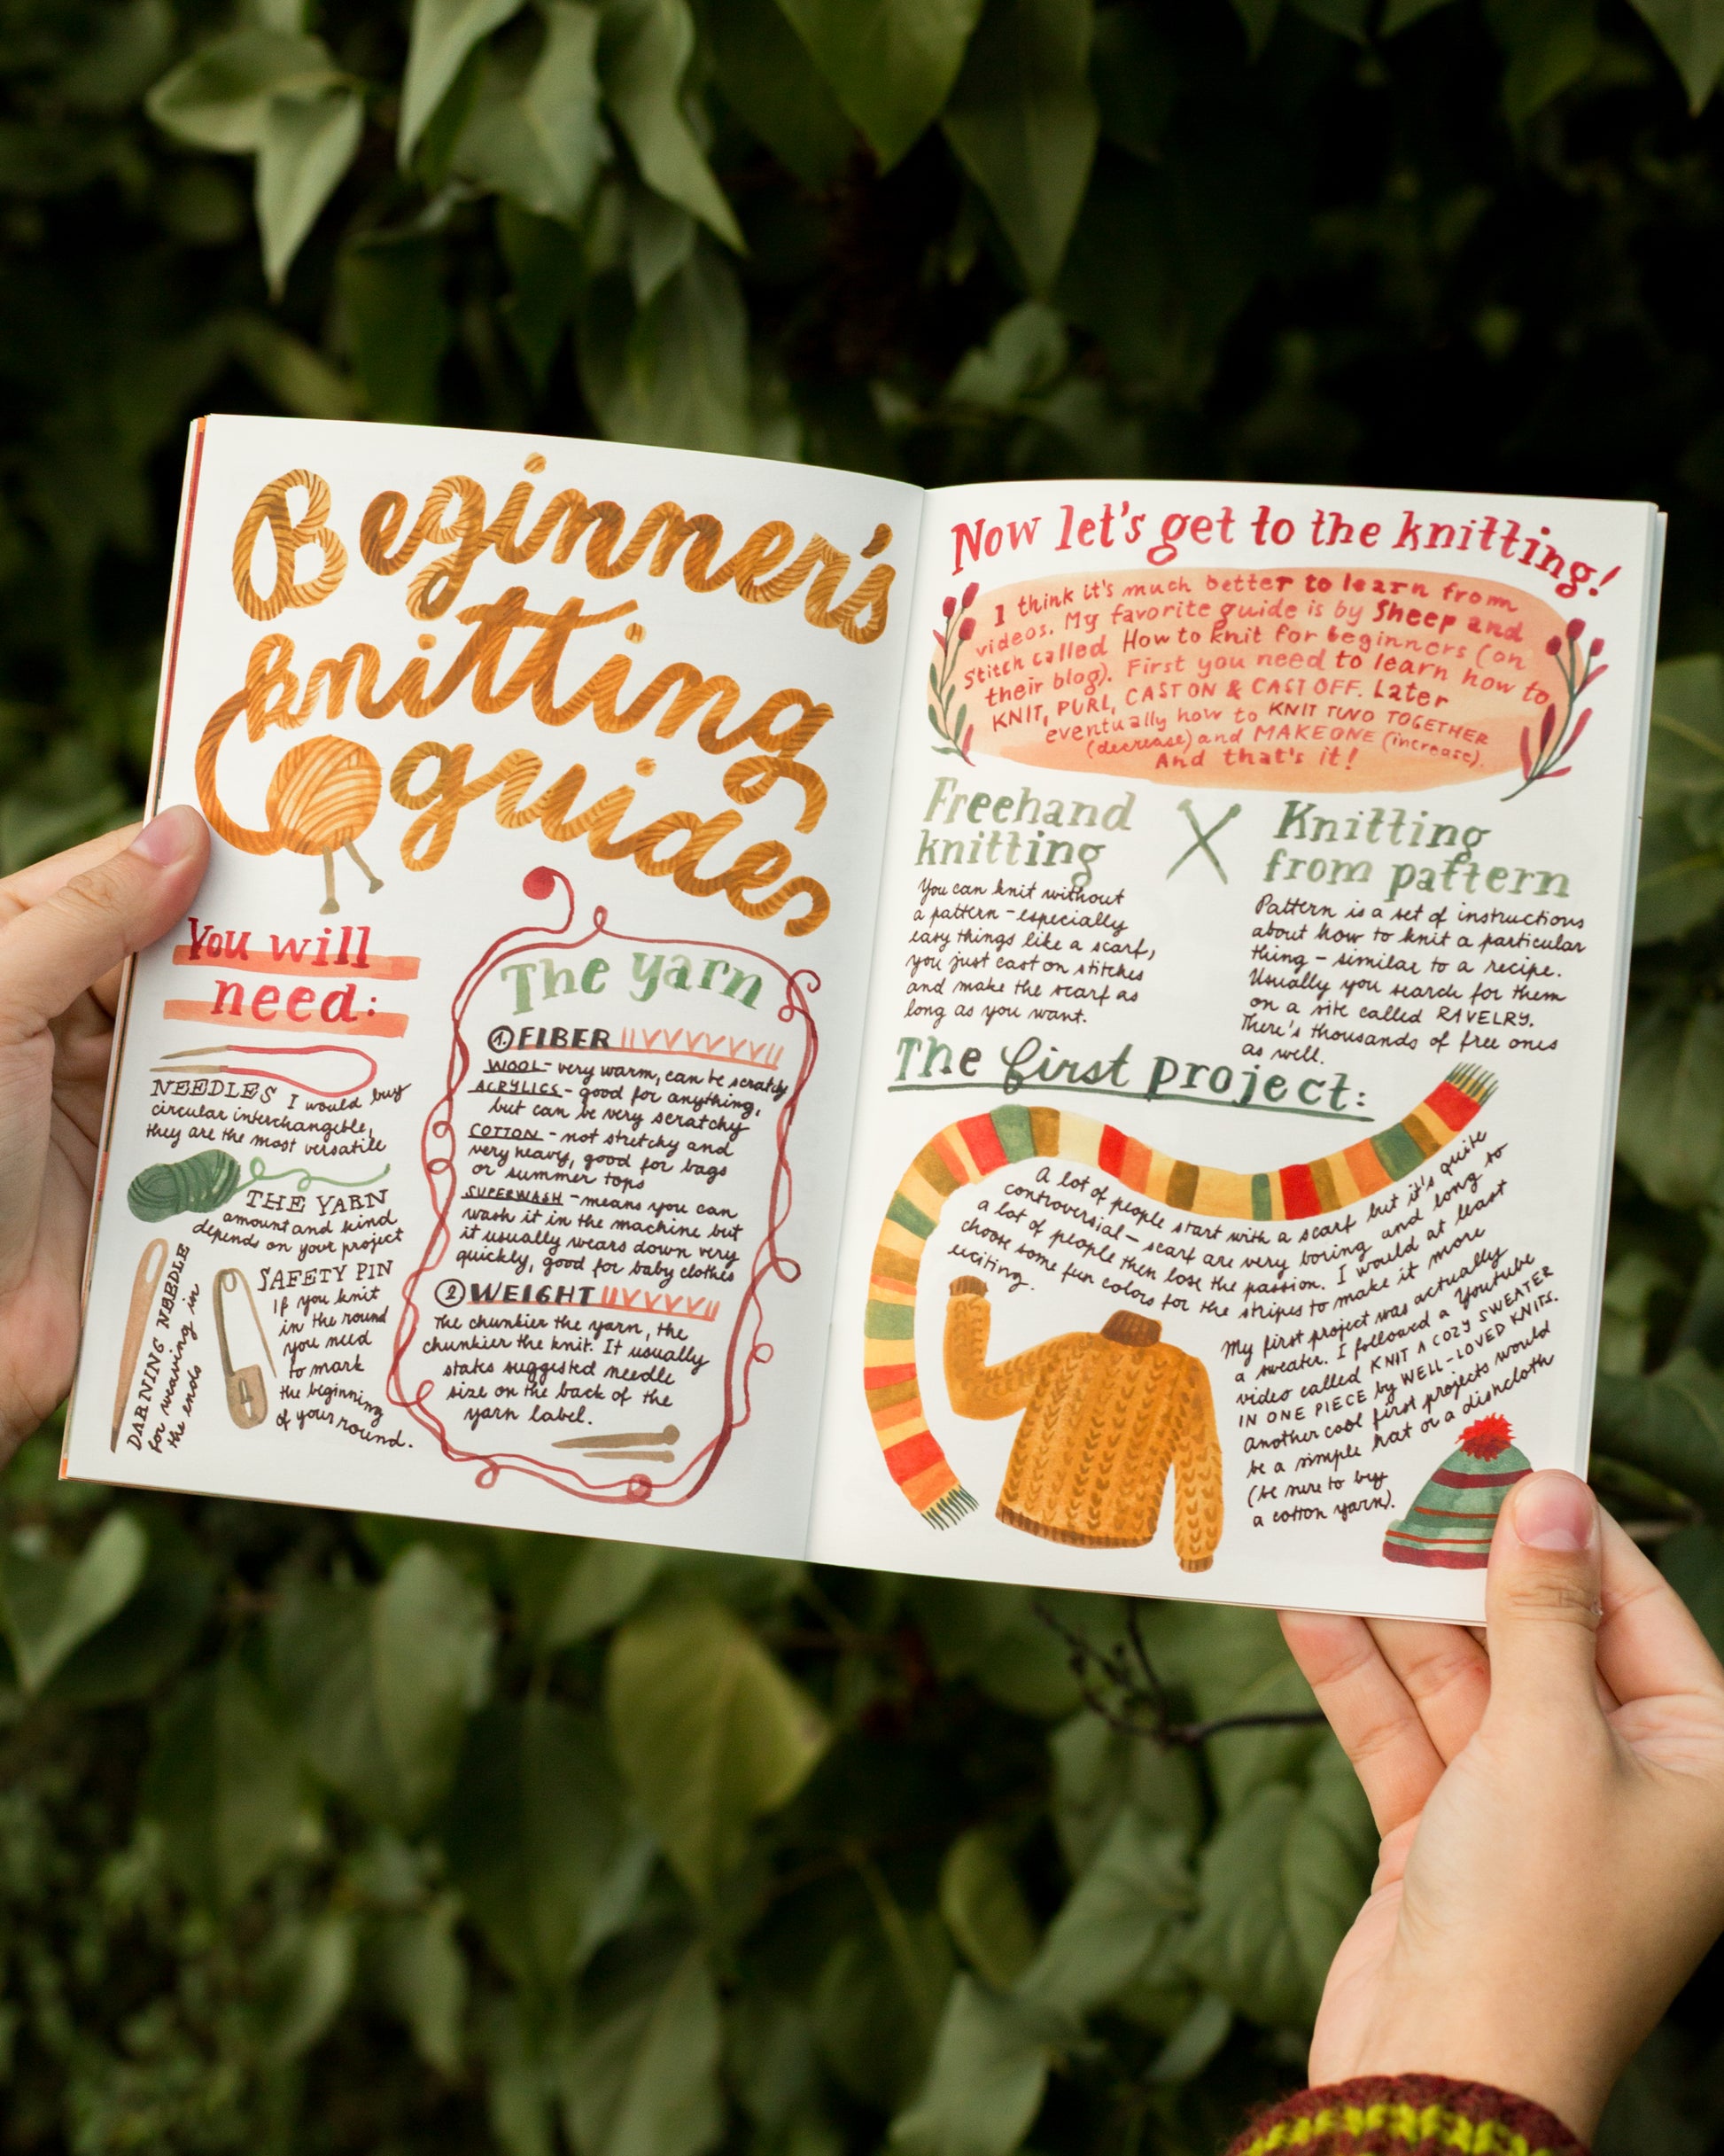 Beginner's
knitting
guide
You will
need:
NEEDLES I would buy
circular interchangeble,
they are the most versatile
THE YARN
amount and kind
depends on your project
DARNING NEEDLE
for weaving in
the ends
SAFETY PIN
If you knit
in the round
you need
to mark
the beginning
of your round.
The yarn
1. FIBER
WOOL - very warm, can be scratchy
ACRYLICS - good for anything,
but can be very scratchy
COTTON - not stretchy and
very heavy, good for bags
or summer tops
SUPERWASH - means you can
wash it in the machine but
it usually wears down very
quickly, good for baby clothes
2 WEIGHT
The chunkier the yarn, the
chunkier the knit. It usually
states suggested needle
size on the back of the
yarn label.
Now let's get to the knitting!
I think it's much better to learn from
videos. My favorite guide is by Sheep and
Stitch called How to knit for beginners (on
their blog). First you need to learn how to
KNIT, PURL, CAST ON & CAST OFF. Later
eventually how to KNIT TWO TOGETHER
(decrease) and MAKE ONE (increase).
And that's it!
Freehand
knitting
You can knit without
a pattern - especially
easy things like a scarf,
you just cast on stitches
and make the scarf as
long as you want.
Knitting
from pattern
Pattern is a set of instructions
about how to knit a particular
thing - similar to a recipe.
Usually you search for them
on a site called RAVELRY.
There's thousands of free ones
as well.
The first project:
A lot of people start with a scarf but it's quite
controversial - scarf are very boring and long to
a lot of people then lose the passion. I would at least
choose some fun colors for the stripes to make it more
exciting.
My first project was actually
a sweater. I followed a youtube
video called KNIT A COZY SWEATER
IN ONE PIECE by WELL-LOVED KNITS.
Another cool first projects would
be a simple hat or a dishcloth
(be sure to buy
a cotton yarn).